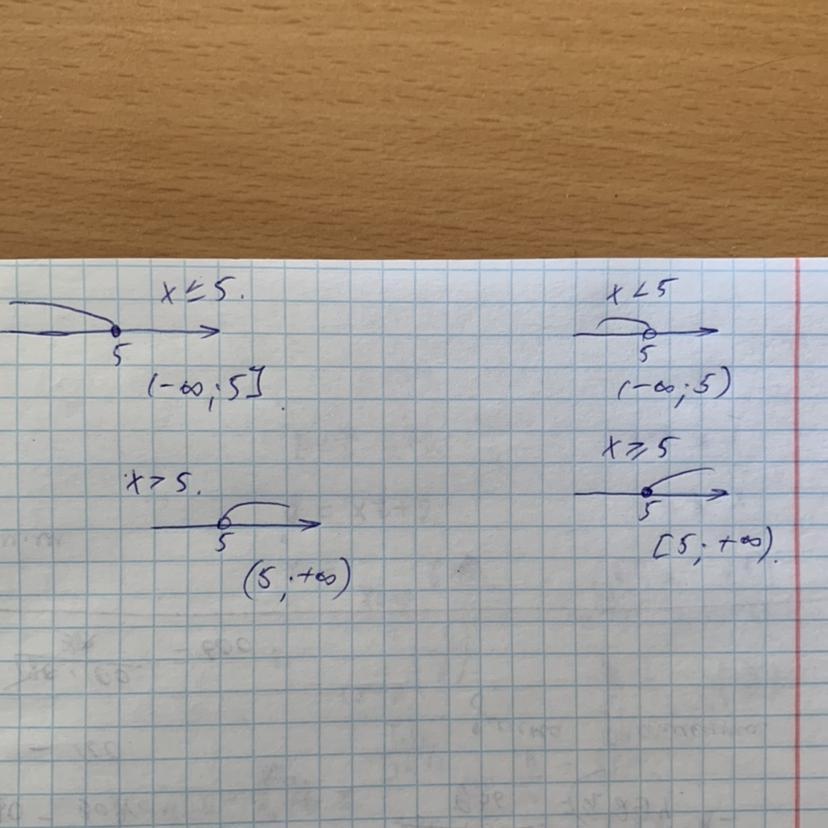 x ≤ 5.
5
(-∞; 5]
x < 5
5
(-∞; 5)
x > 5.
5
(5; +∞)
x ≥ 5
5
[5; +∞).